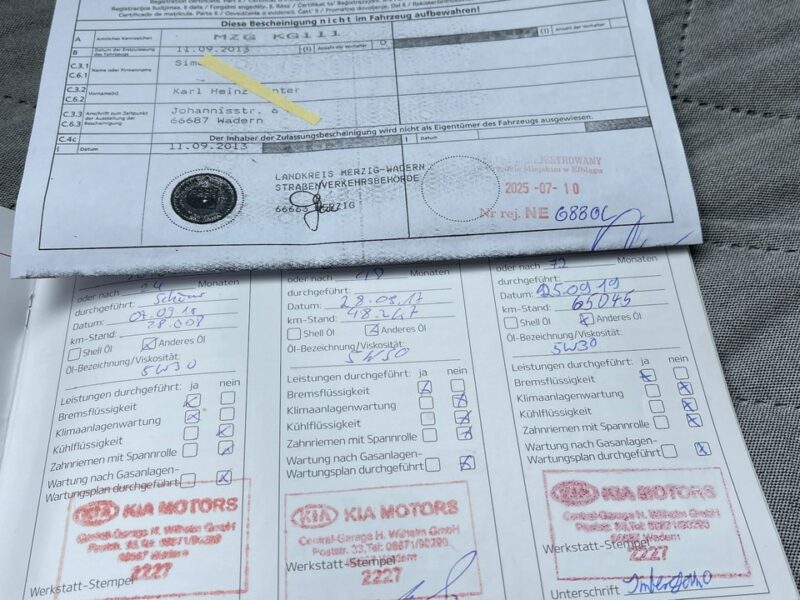 Diese Bescheinigung nicht im Fahrzeug aufbewahren!
A Amtliches Kennzeichen MZG KG111
B Datum der Erstzulassung des Fahrzeugs 11.09.2013 (1) Anzahl der Vorhalter 0
(1) Anzahl der Vorhalter
C.3.1 C.6.1 Name oder Firmenname
C.3.2 C.6.2 Vorname(n) Karl Heinz
C.3.3 C.6.3 Anschrift zum Zeitpunkt der Ausstellung der Bescheinigung Johannisstr. 6
66687 Wadern
C.4c Der Inhaber der Zulassungsbescheinigung wird nicht als Eigentümer des Fahrzeugs ausgewiesen.
I Datum 11.09.2013
I Datum
LANDKREIS MERZIG-WADERN
STRAßENVERKEHRSBEHÖRDE
66663 MERZIG
2025 -07- 10
Nr rej. NE
oder nach 24 Monaten
durchgeführt:
Datum: 07.09.15
km-Stand: 28.008
Shell Öl Anderes Öl
Öl-Bezeichnung/Viskosität:
5W30
Leistungen durchgeführt: ja nein
Bremsflüssigkeit
Klimaanlagenwartung
Kühlflüssigkeit
Zahnriemen mit Spannrolle
Wartung nach Gasanlagen-
Wartungsplan durchgeführt
KIA KIA MOTORS
Central-Garage H. Wilhelm GmbH
2227
Werkstatt-Stempel
oder nach 48 Monaten
durchgeführt:
Datum: 28.08.17
km-Stand: 48.247
Shell Öl Anderes Öl
Öl-Bezeichnung/Viskosität:
5W30
Leistungen durchgeführt: ja nein
Bremsflüssigkeit
Klimaanlagenwartung
Kühlflüssigkeit
Zahnriemen mit Spannrolle
Wartung nach Gasanlagen-
Wartungsplan durchgeführt
KIA KIA MOTORS
Central-Garage H. Wilhelm GmbH
Poststr. 33, Tel: 06871/90290
2227
Werkstatt-Stempel
oder nach 72 Monaten
durchgeführt:
Datum: 25.09.19
km-Stand: 65045
Shell Öl Anderes Öl
Öl-Bezeichnung/Viskosität:
5W30
Leistungen durchgeführt: ja nein
Bremsflüssigkeit
Klimaanlagenwartung
Kühlflüssigkeit
Zahnriemen mit Spannrolle
Wartung nach Gasanlagen-
Wartungsplan durchgeführt
KIA KIA MOTORS
Central-Garage H. Wilhelm GmbH
2227
Werkstatt-Stempel
Unterschrift